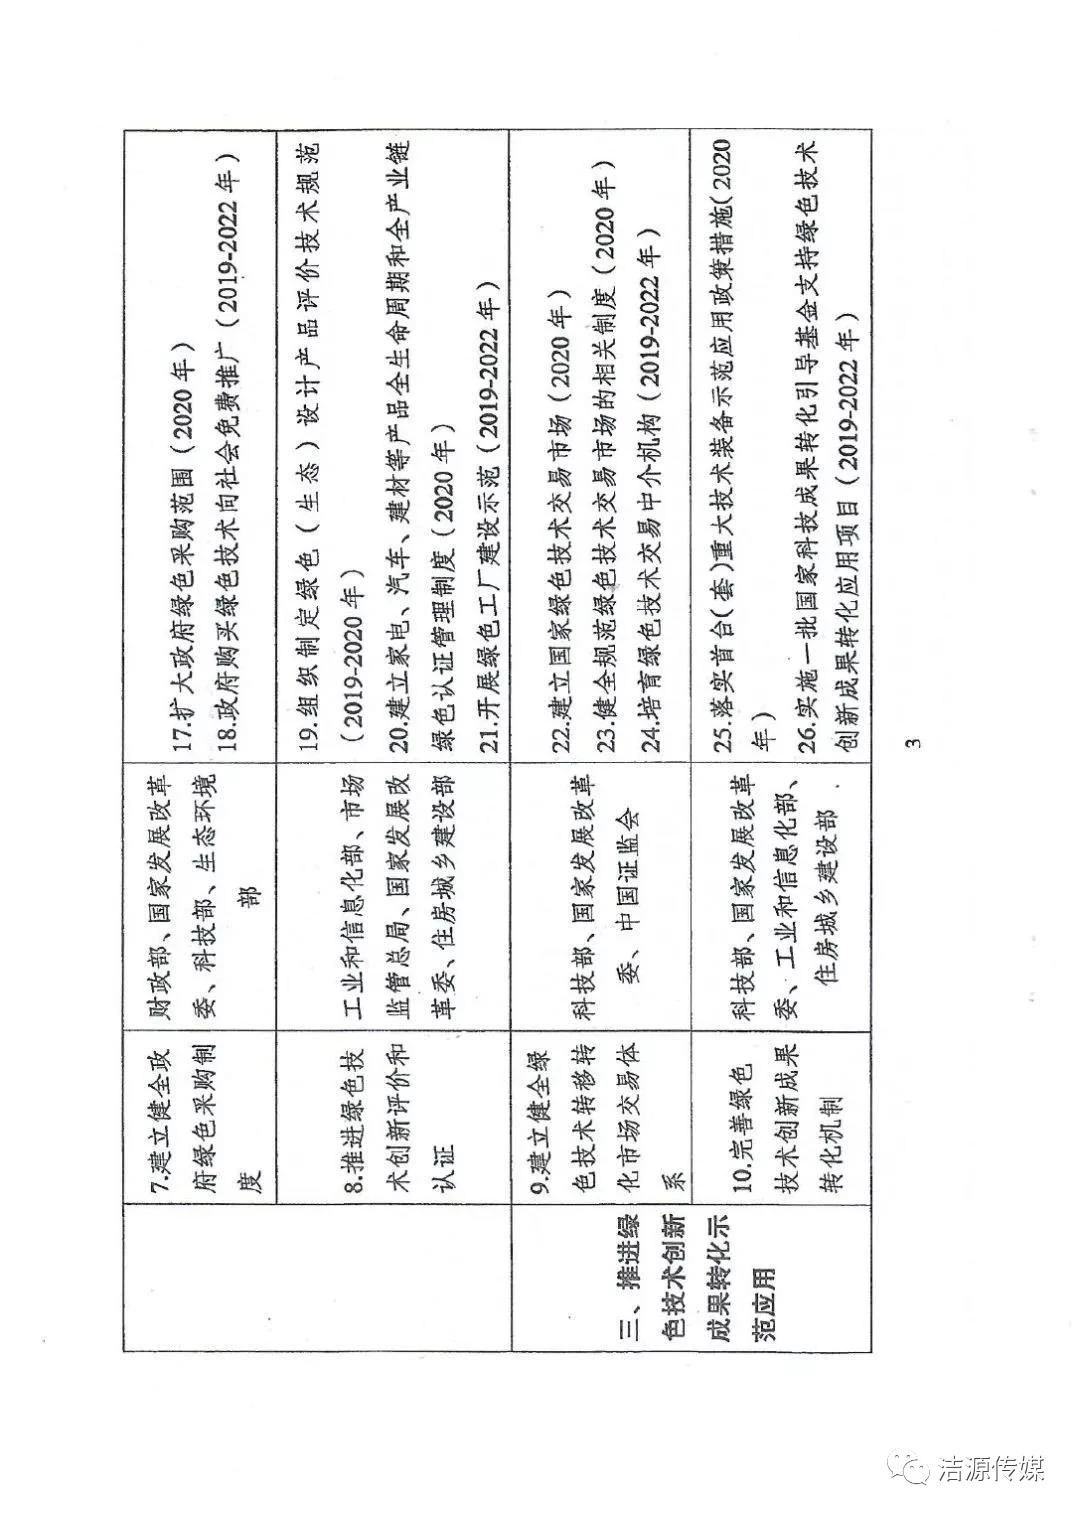 7.建立健全政
府绿色采购制
度
财政部、国家发展改革
委、科技部、生态环境
部
17.扩大政府绿色采购范围（2020 年）
18.政府购买绿色技术向社会免费推广（2019-2022 年）
8.推进绿色技
术创新评价和
认证
工业和信息化部、市场
监管总局、国家发展改
革委、住房城乡建设部
19.组织制定绿色（生态）设计产品评价技术规范
（2019-2020 年）
20.建立家电、汽车、建材等产品全生命周期和全产业链
绿色认证管理制度（2020 年）
21.开展绿色工厂建设示范（2019-2022 年）
三、推进绿
色技术创新
成果转化示
范应用
9.建立健全绿
色技术转移转
化市场交易体
系
科技部、国家发展改革
委、中国证监会
22.建立国家绿色技术交易市场（2020 年）
23.健全规范绿色技术交易市场的相关制度（2020 年）
24.培育绿色技术交易中介机构（2019-2022 年）
10.完善绿色
技术创新成果
转化机制
科技部、国家发展改革
委、工业和信息化部、
住房城乡建设部
25.落实首台（套）重大技术装备示范应用政策措施（2020
年）
26.实施一批国家科技成果转化引导基金支持绿色技术
创新成果转化应用项目（2019-2022 年）
3
洁源传媒